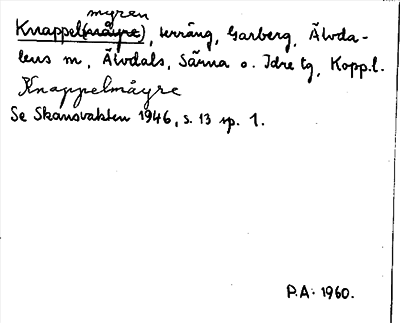 myren
Knappel(måyre), terräng, Garberg, Älvda-
lens m, Älvdals, Särna o. Idre tg, Kopp.l.
Knappelmåyre
Se Skansvakten 1946, s. 13 sp. 1.
P.A. 1960.